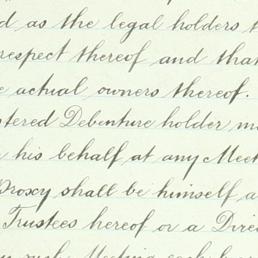 d as the legal holders
respect thereof and that
actual owners thereof.
stered Debenture holder m
his behalf at any Meet
Proxy shall be himself a
Trustees hereof or a Dire
such Meeting each